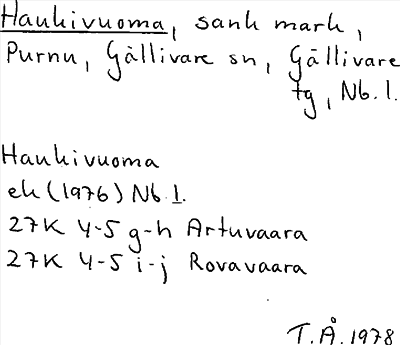 Haukivuoma, sank mark,
Purnu, Gällivare sn, Gällivare
tg, Nb. l.
Haukivuoma
ek (1976) Nb l.
27K 4-5 g-h Artuvaara
27K 4-5 i-j Rovavaara
T.Å. 1978